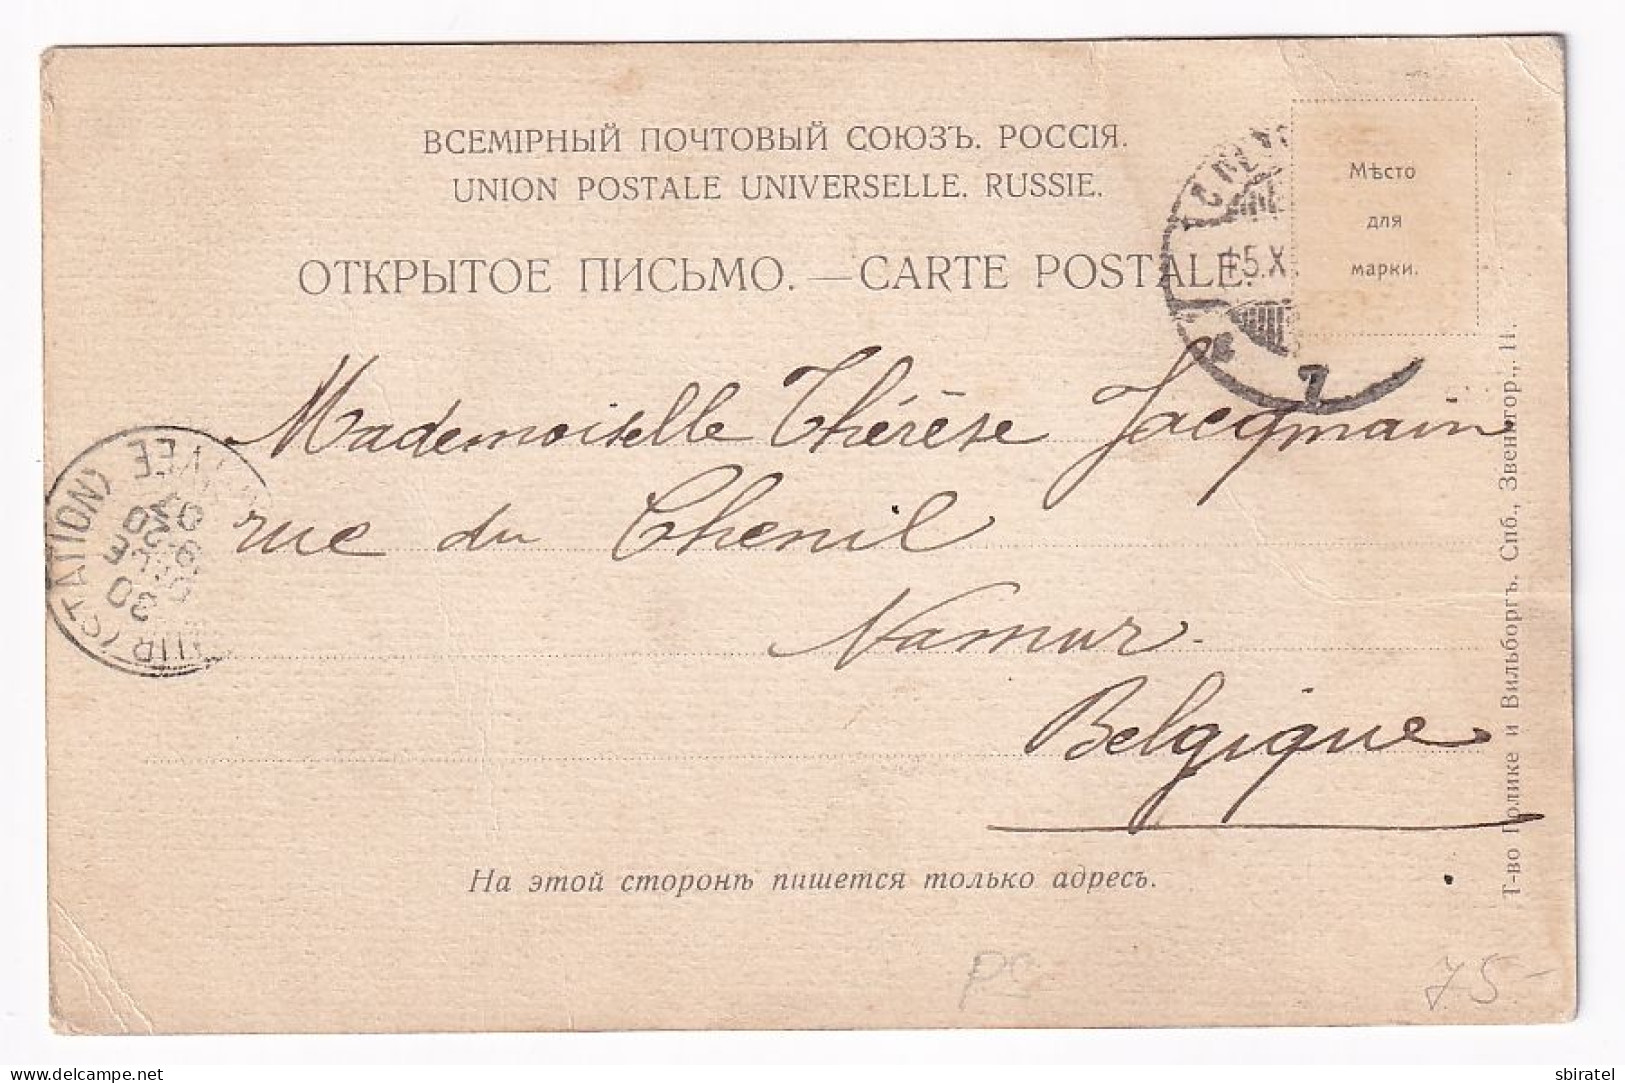 ВСЕМІРНЫЙ ПОЧТОВЫЙ СОЮЗЪ. РОССІЯ.
UNION POSTALE UNIVERSELLE. RUSSIE.
ОТКРЫТОЕ ПИСЬМО. — CARTE POSTALE.
Мѣсто
для
марки.
15.X
7
Mademoiselle Thérèse Jacqmain
rue du Chenil
Namur
Belgique
(STATION)
На этой сторонѣ пишется только адресъ.
Т-во Голике и Вильборгъ. Спб., Звенигор., 11.
75-
sbiratel